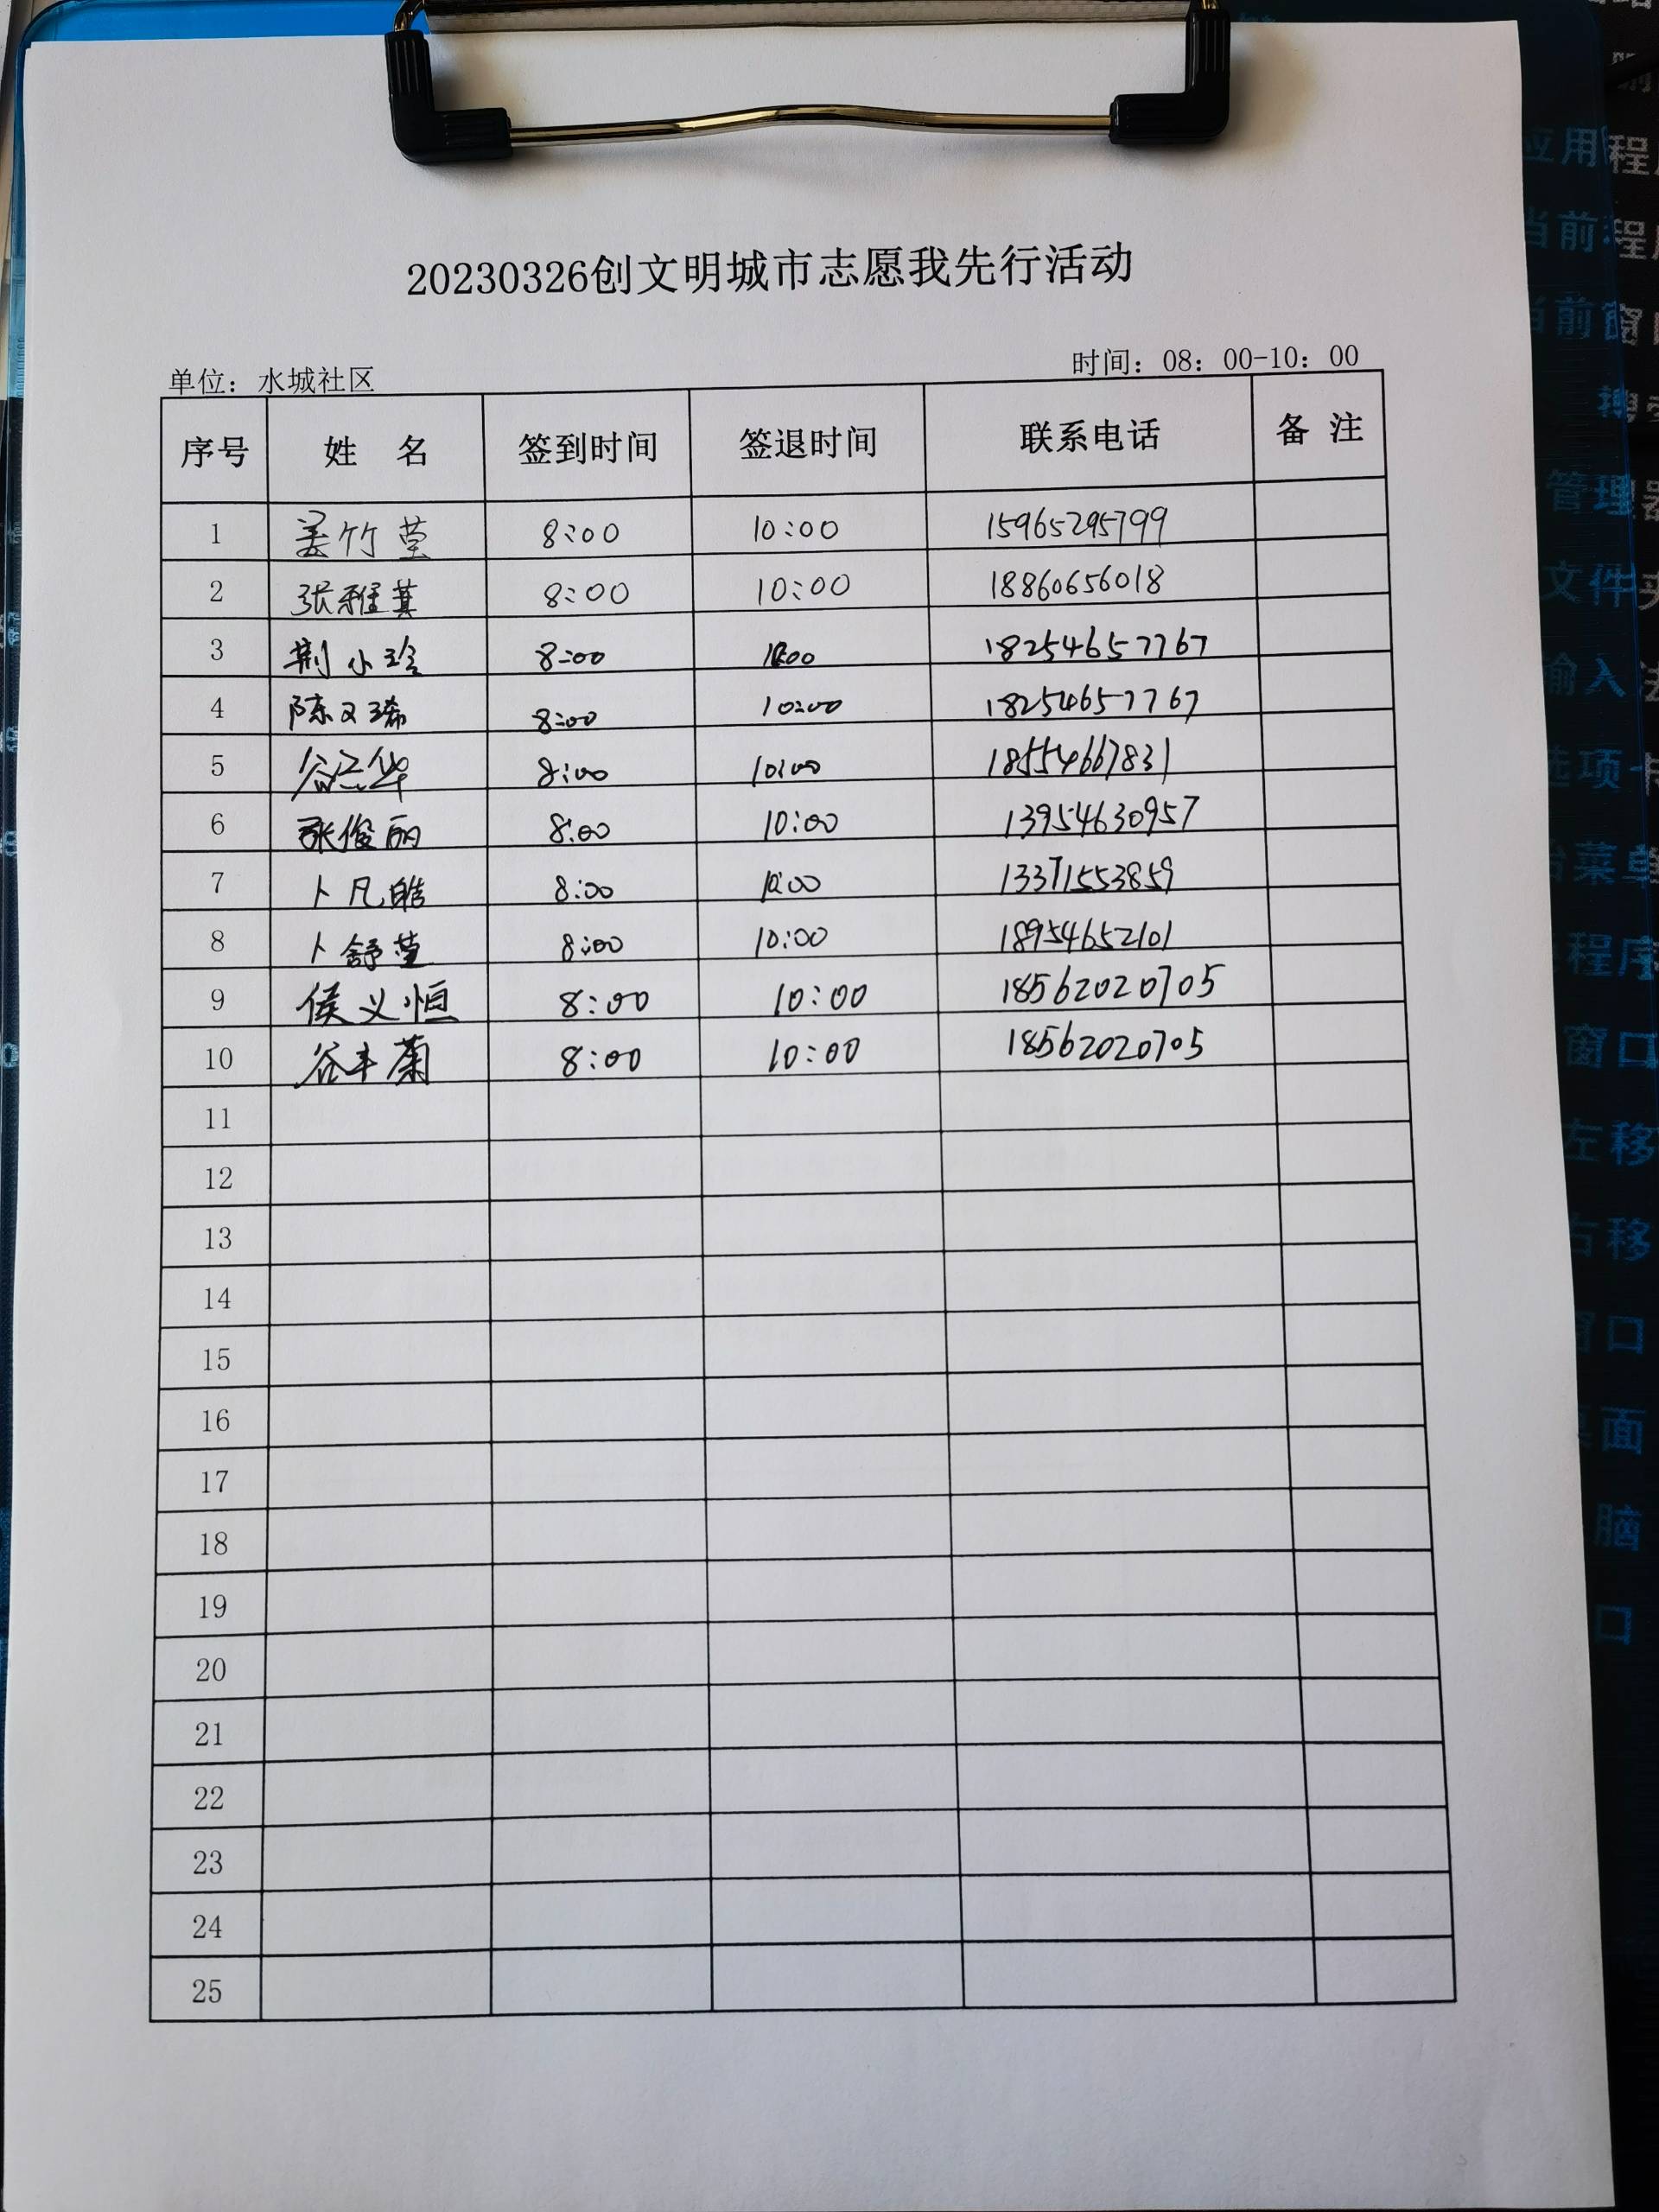 20230326创文明城市志愿我先行活动
单位：水城社区 时间：08：00-10：00
序号 姓 名 签到时间 签退时间 联系电话 备 注
1 姜竹莹 8:00 10:00 15965295799
2 张雅萁 8:00 10:00 18860656018
3 荆小玲 8:00 10:00 18254657767
4 陈又琋 8:00 10:00 18254657767
5 8:00 10:00 18554667831
6 张俊丽 8:00 10:00 13954630957
7 卜凡皓 8:00 10:00 13371553859
8 卜舒莹 8:00 10:00 18954652101
9 侯义恒 8:00 10:00 18562020705
10 谷丰菊 8:00 10:00 18562020705
11
12
13
14
15
16
17
18
19
20
21
22
23
24
25
应用程
当前程
当前窗
搜
管理器
文件夹
输入法
选项卡
菜单
程序
窗口
左移
右移
窗口
桌面
脑
口